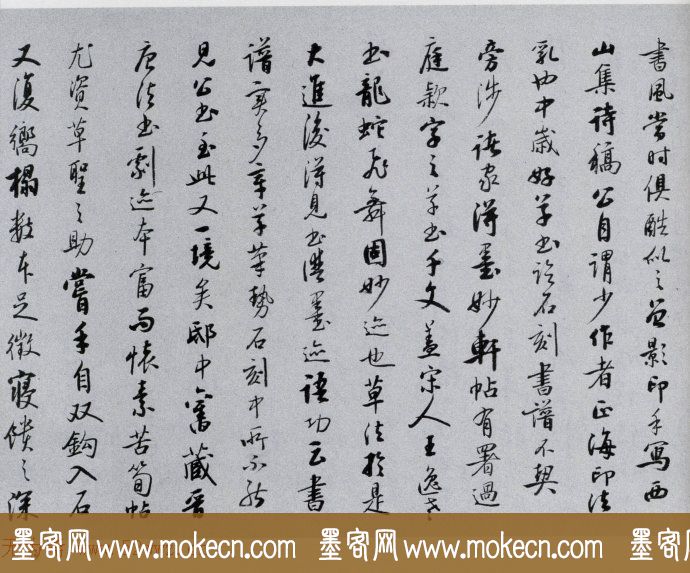 書風當时俱酷似之曾影印手寫西
山集诗稿公自谓少作者正海印法
乳也中歲好草书 石刻書譜不契
旁涉诸家得墨妙軒帖有署過
庭款字之草书千文盖宋人王逸老
书龍蛇飛舞固妙迹也草法於是
大進後得見书谱墨迹語功云書
譜實多章草筆勢石刻中所不能
見公书至此又一境矣邸中舊藏晋
唐法书劇迹本富而懷素苦筍帖
尤資草聖之助嘗手自双鈎入石
又復嚮榻数本足徵寢饋之深
墨客网 www.mokecn.com 墨客网 www.mokecn.com